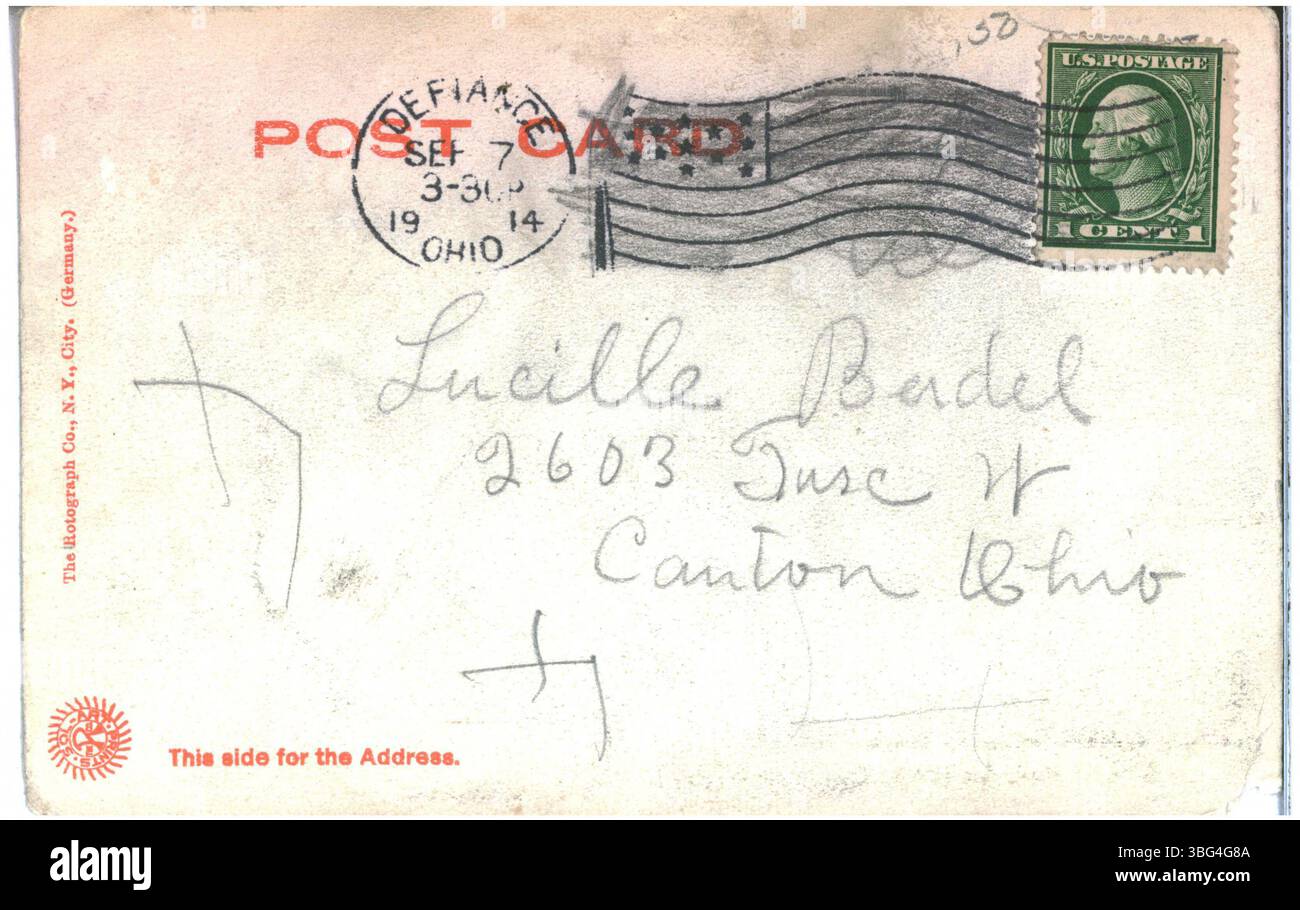 ,50
U.S. POSTAGE
1 CENT 1
DEFIANCE
SEP 7
3-30P
19 14
OHIO
POST CARD
Lucille Berdel
2603 Tusc W
Canton Ohio
The Rotograph Co., N. Y., City. (Germany.)
SOL-ART PRINTS
This side for the Address.
a
alamy
Image ID: 3BG4G8A
www.alamy.com